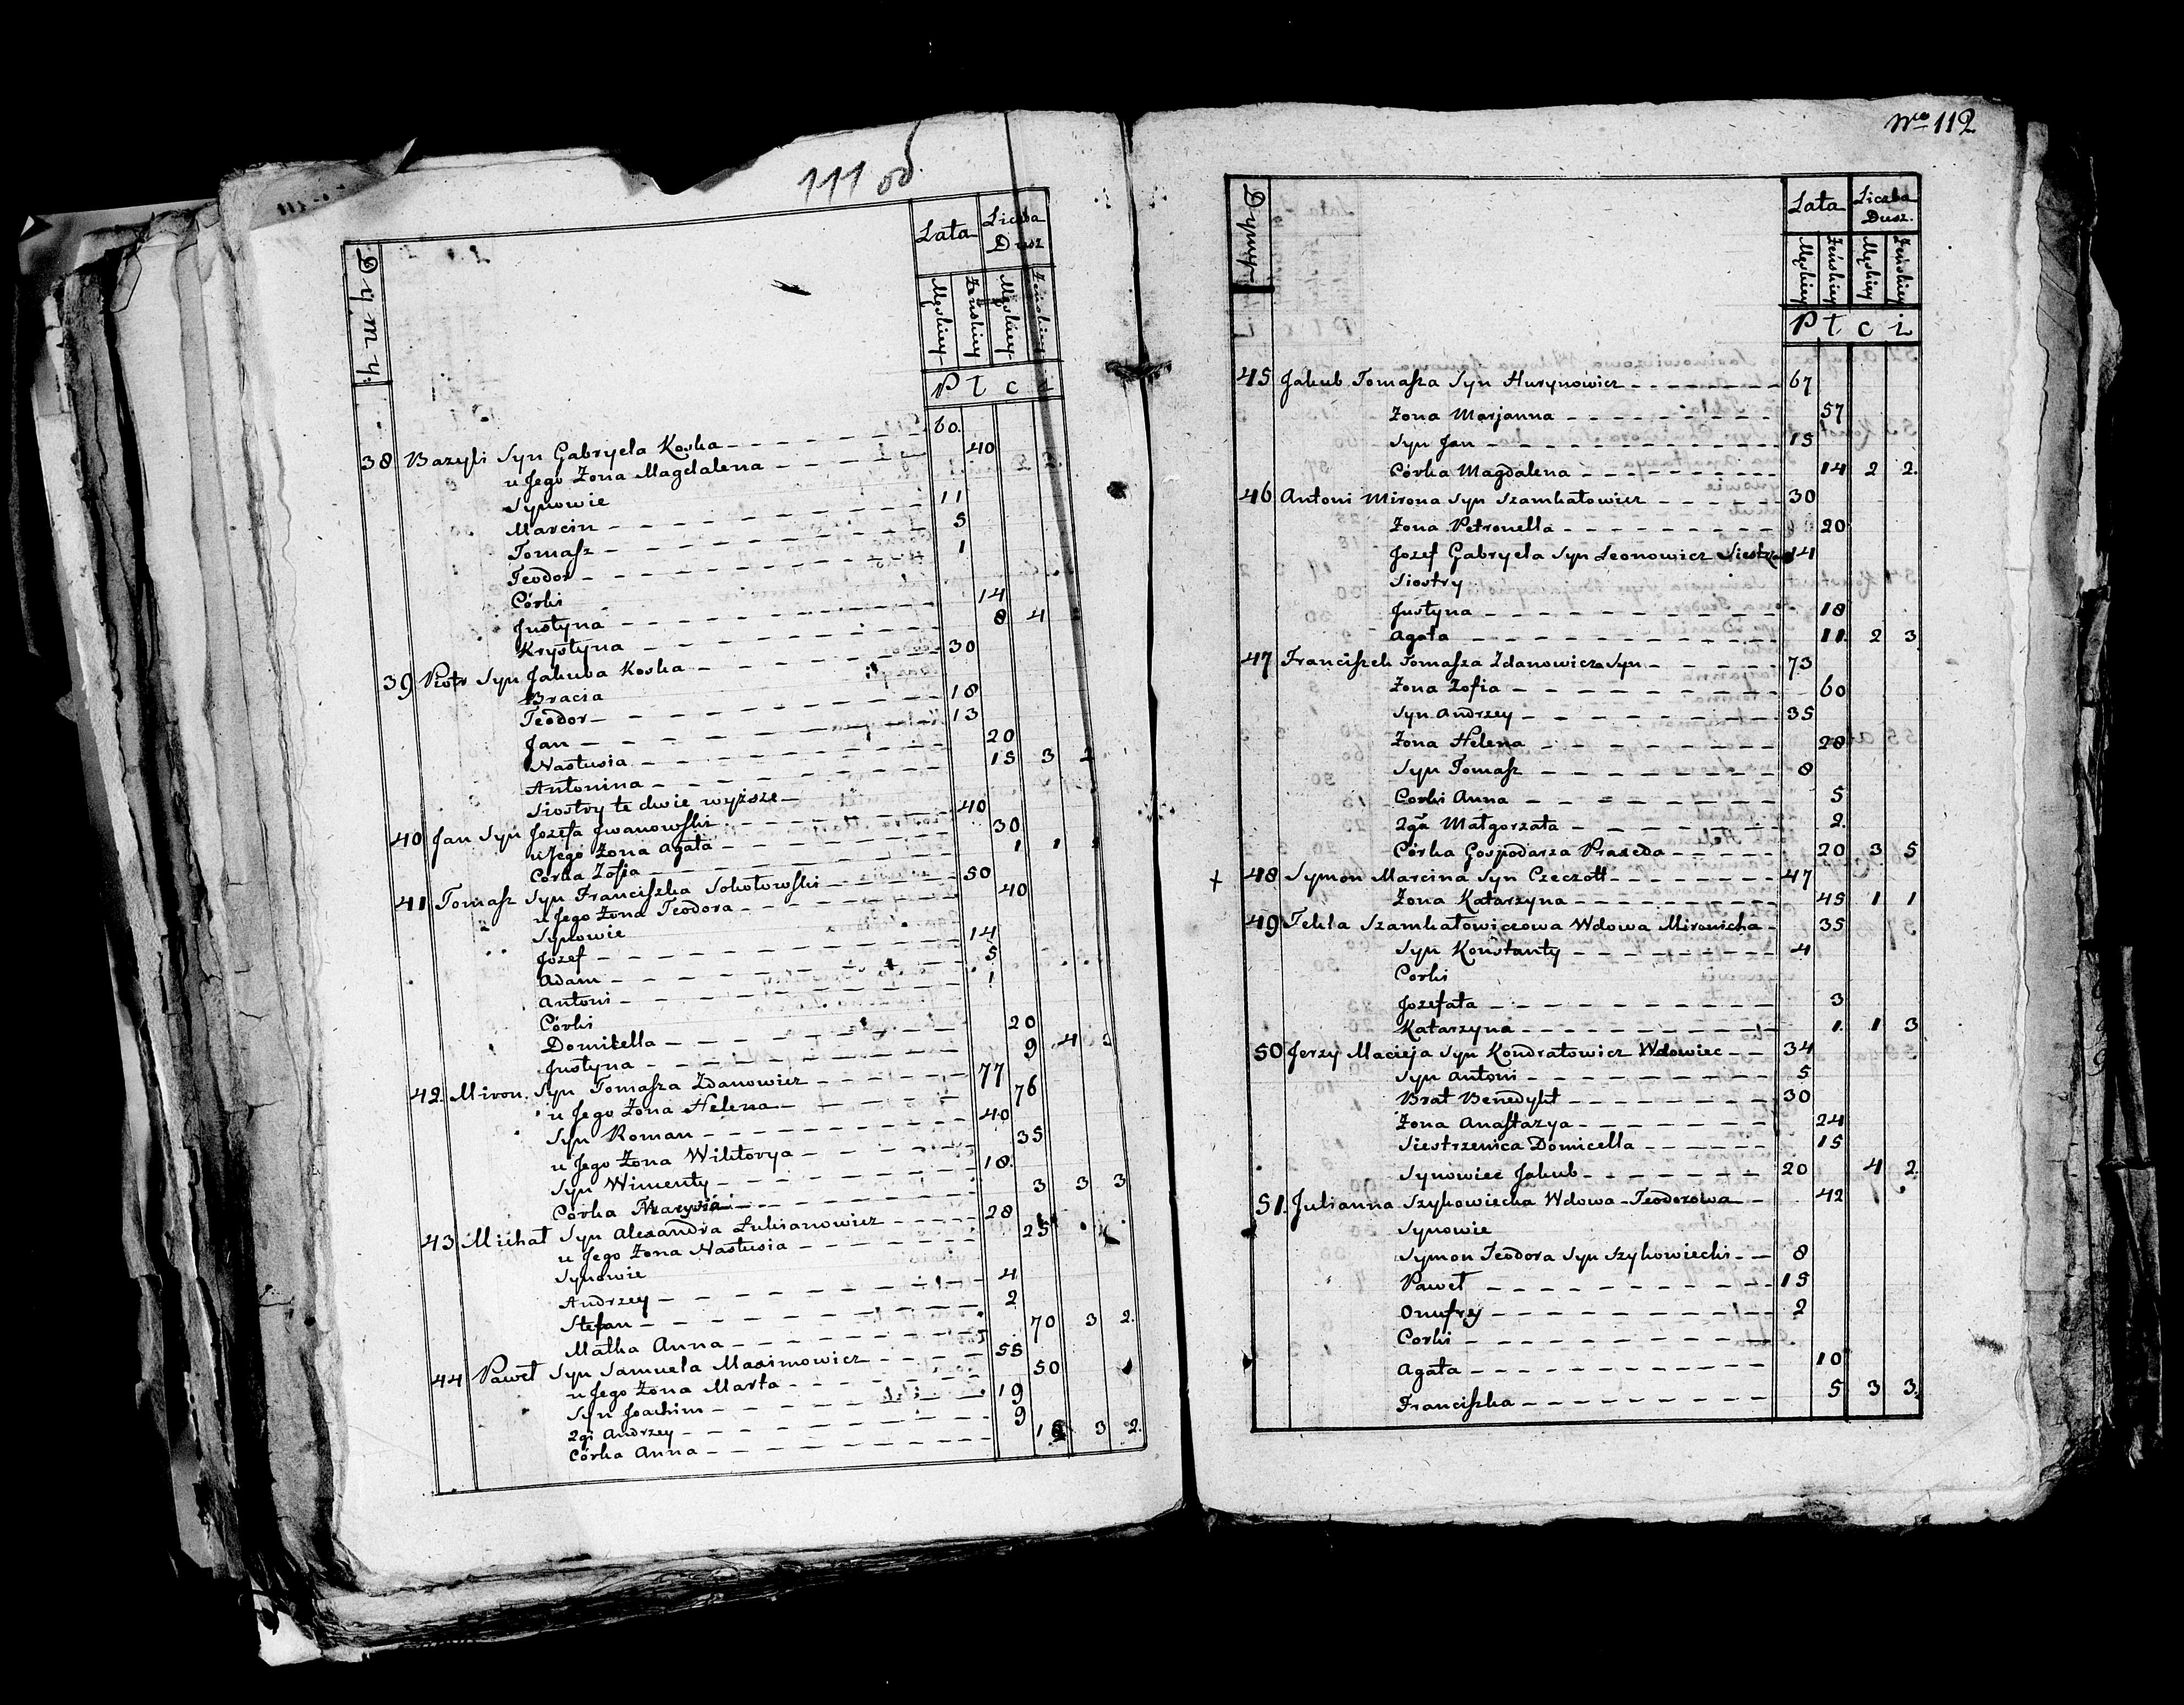 111 об
Dymy
Lata
Liczba Dusz
Męskiey Żeńskiey Męskiey Żeńskiey
P ł c i
38 Bazyli Syn Gabryela Koska 60
u Jego Żona Magdalena 40
Synowie
Marcin 11
Tomasz 5
Teodor 1
Córki
Justyna 14
Krystyna 8 4
39 Piotr Syn Jakuba Koska 30
Bracia
Teodor 18
Jan 13
Nastusia 20
Antonina 15 3 2
Siostry te dwie wyższe
40 Jan Syn Jozefa Jwanowski 40
u Jego Żona Agata 30
Corka Zofia 1 1
41 Tomasz Syn Franciszka Sokołowski 50
u Jego Żona Teodora 40
Synowie
Jozef 14
Adam 5
Antoni 1
Córki
Domicella 20
Justyna 9 4 3
42. Miron Syn Tomasza Zdanowicz 77
u Jego Żona Helena 76
Syn Roman 40
u Jego Żona Wiktorya 35
Syn Wincenty 18
Córka Maryia 3 3 3
43 Michał Syn Alexandra Łukianowicz 28
u Jego Żona Nastusia 25
Synowie
Andrzey 4
Stefan 2
Matka Anna 70 3 2.
44 Paweł Syn Samuela Maximowicz 55
u Jego Żona Marta 50
Syn Joachim 19
2gi Andrzey 9
Córka Anna 3 2.
No 112
Dymy
Lata
Liczba Dusz.
Męskiey Żeńskiey Męskiey Żeńskiey
P ł c i
45 Jakub Tomasza Syn Hurynowicz 67
Żona Marjanna 57
Syn Jan 15
Córka Magdalena 14 2 2.
46 Antoni Mirona Syn Szamkatowicz 30
Żona Petronella 20
Jozef Gabryela Syn Leonowicz 14
Siostry
Justyna 18
Agata 11 2 3
47 Franciszek Tomasza Zdanowicza Syn 73
Żona Zofia 60
Syn Andrzey 35
Żona Helena 28
Syn Tomasz 8
Corki Anna 5
2ga Małgorzata 2.
Córka Gospodarza Praxeda 20 3 5
+ 48 Symon Marcina Syn Czeczott 47
Żona Katarzyna 45 1 1
49 Tekla Szamkatowiczowa Wdowa Mironicha 35
Syn Konstanty 4
Corki
Jozefata 3
Katarzyna 1. 1 3
50 Jerzy Macieja Syn Kondratowicz Wdowiec 34
Syn Antoni 5
Brat Benedykt 30
Żona Anastazya 24
Siestrzenica Domicella 15
Synowiec Jakub 20 4 2.
51. Julianna Szykowiecka Wdowa Teodorowa 42
Synowie
Symon Teodora Syn Szykowiecki 8
Paweł 15
Onufry 2
Corki
Agata 10
Franciszka 5 3 3.